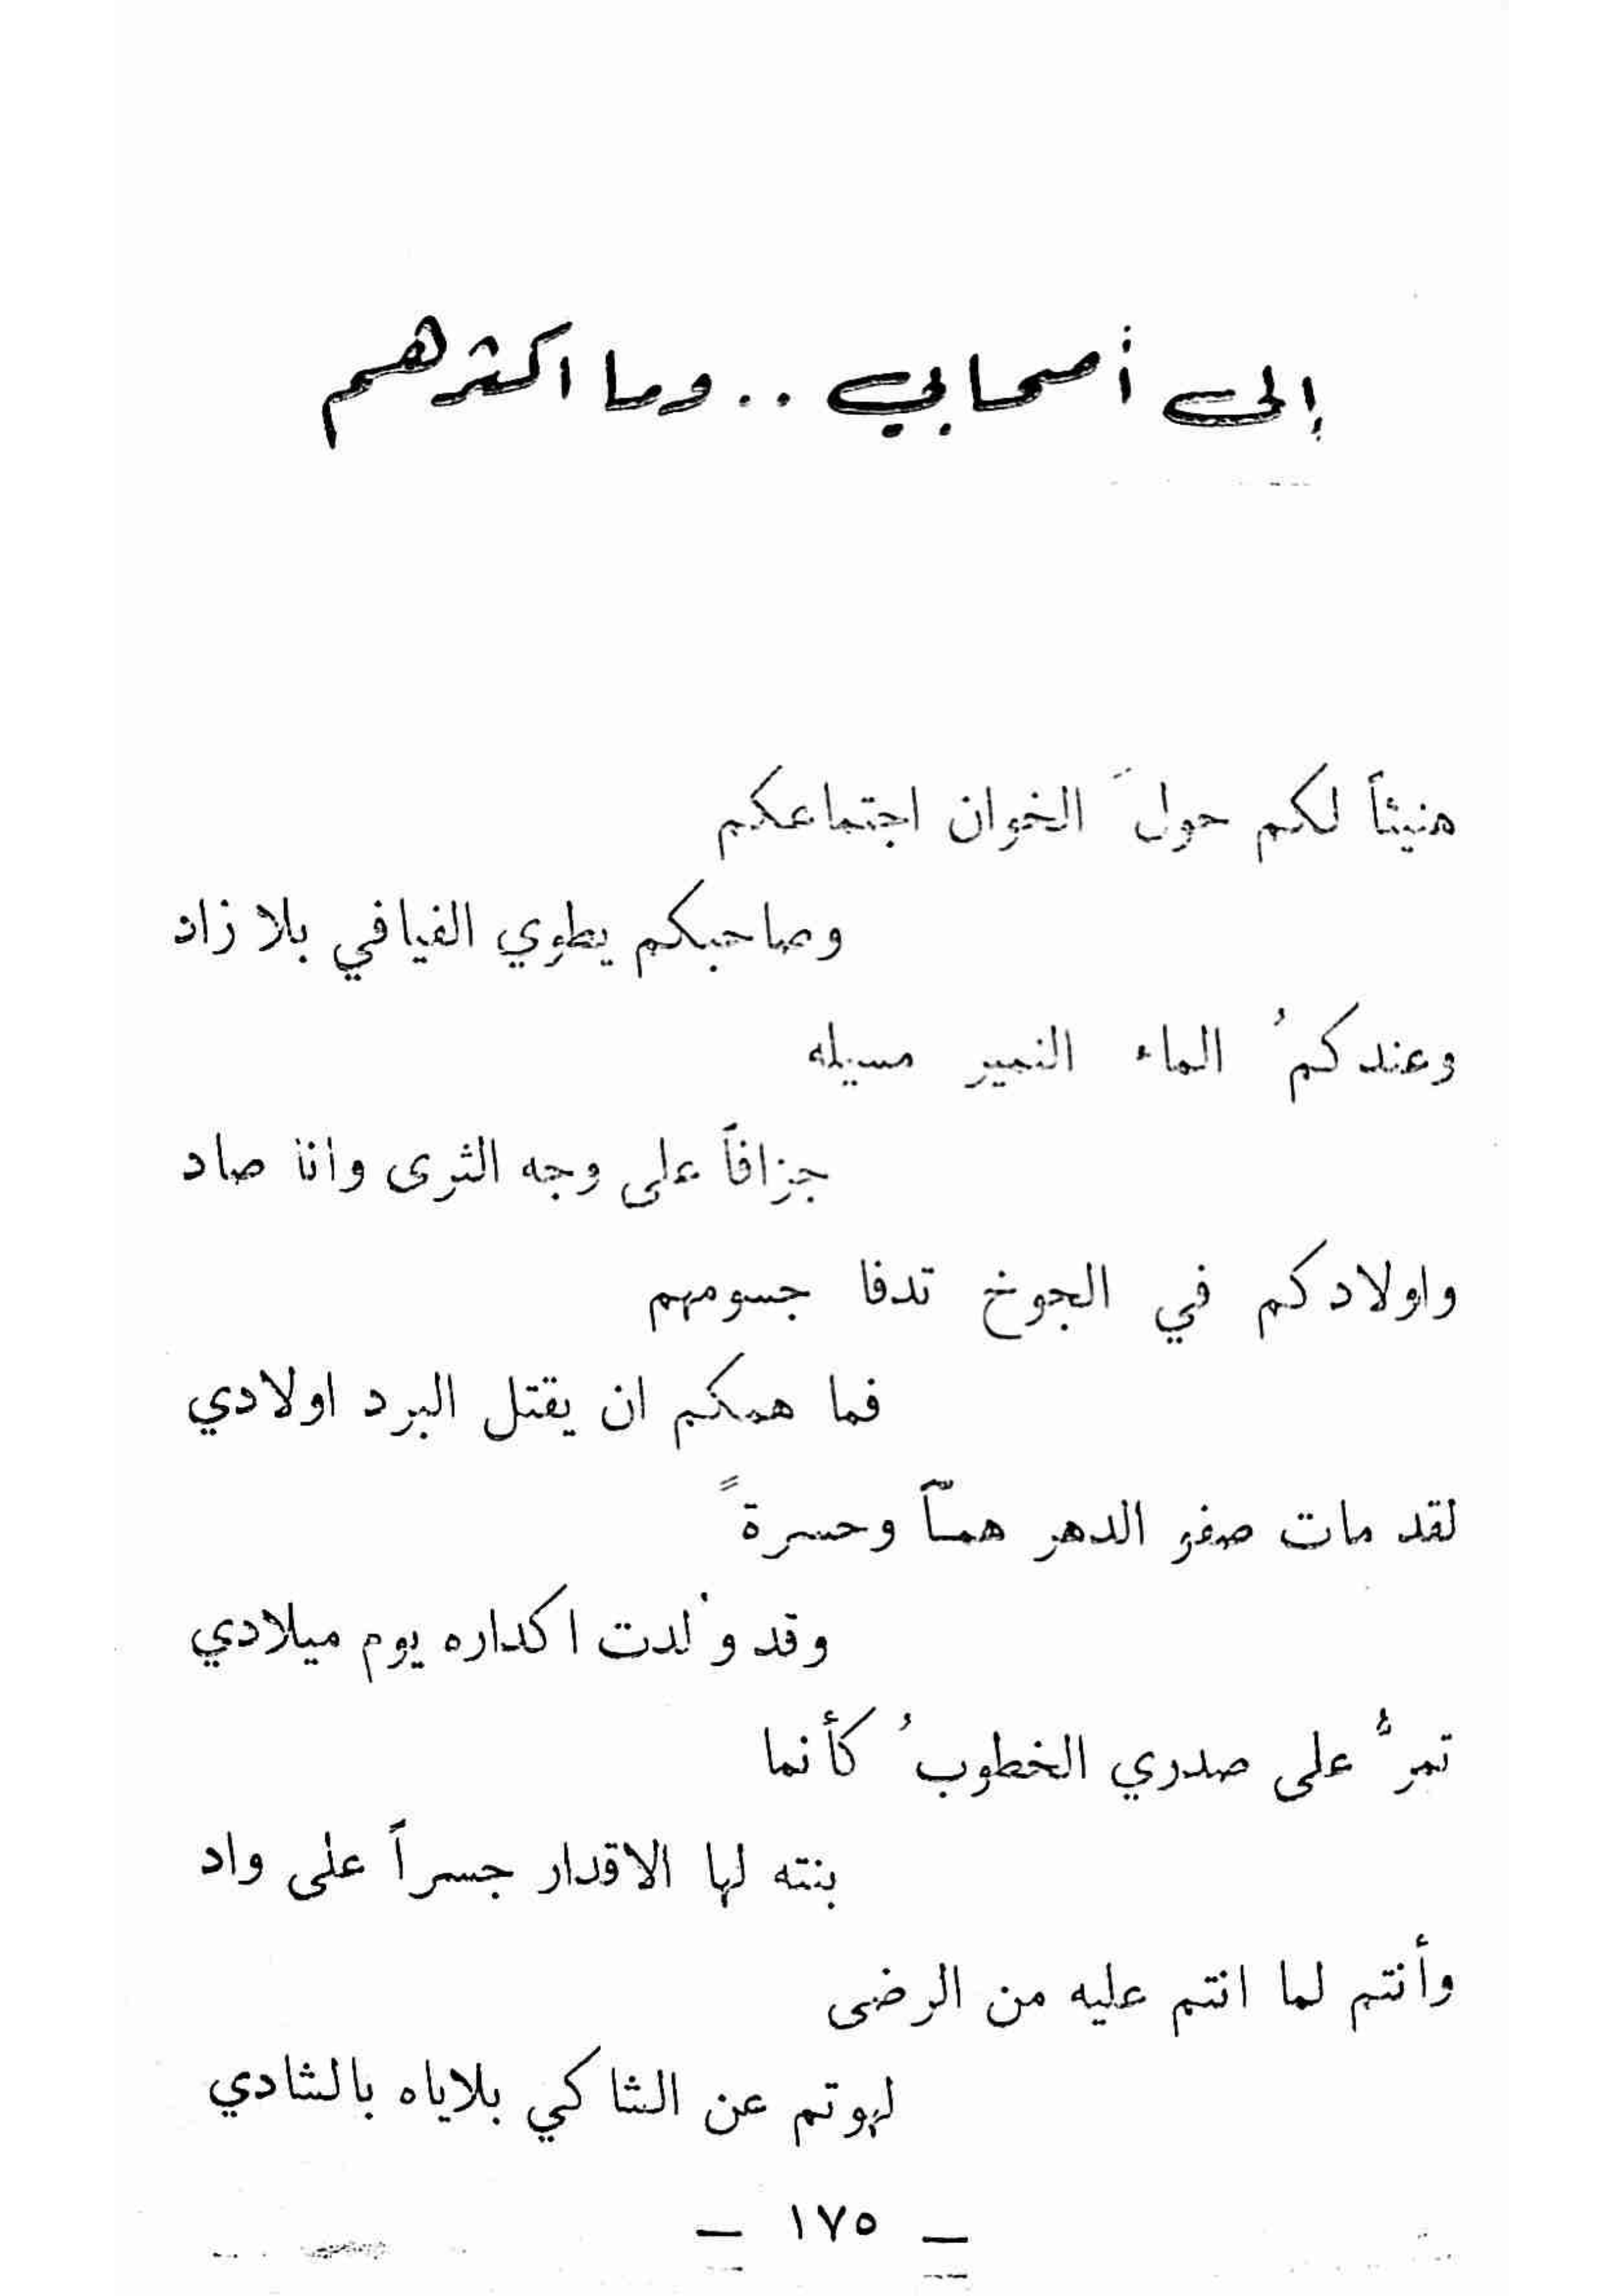 إلى أصحابي .. وما اكثرهم
هنيئاً لكم حولَ الخوان اجتماعكم
وصاحبكم يطوي الفيافي بلا زاد
وعندكمُ الماء النمير مسيله
جزافاً على وجه الثرى وانا صاد
واولادكم في الجوخ تدفا جسومهم
فما همكم ان يقتل البرد اولادي
لقد مات صفو الدهر همّاً وحسرةً
وقد وُلدت اكداره يوم ميلادي
تمرُّ على صدري الخطوبُ كأنما
بنته لها الاقدار جسراً على واد
وأنتم لما انتم عليه من الرضى
لهوتم عن الشاكي بلاياه بالشادي
— ١٧٥ —